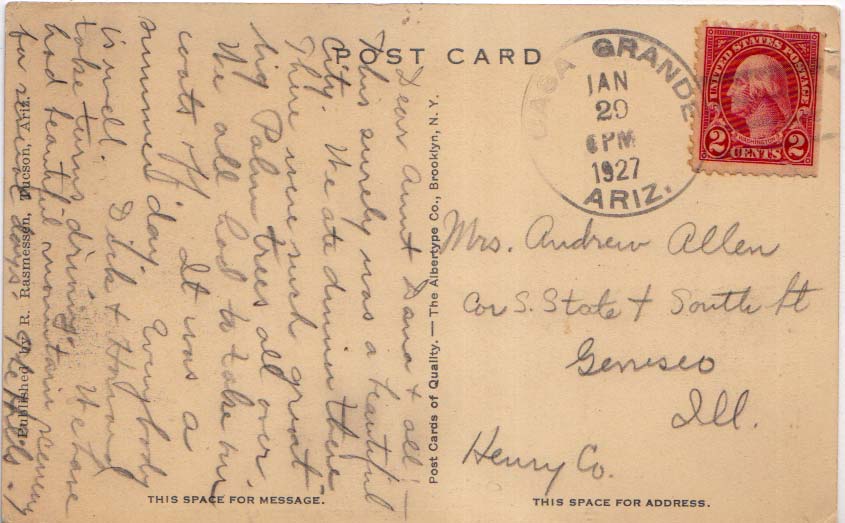 POST CARD
CASA GRANDE
JAN
29
6 PM
1927
ARIZ.
UNITED STATES POSTAGE
WASHINGTON
2 CENTS 2
Dear Aunt Dana & all:—
This surely was a beautiful
city. We ate dinner there
There were such great
big Palm trees all over.
We all had to take our
coats off. It was a
summer day. Everybody
is well. Dick & Howard
take turns driving. We have
had beautiful mountain scenery
for several days.
Published by R. Rasmessen, Tucson, Ariz.
Post Cards of Quality. — The Albertype Co., Brooklyn, N. Y.
Mrs. Andrew Allen
Cor S. State & South St
Geneseo
Ill.
Henry Co.
THIS SPACE FOR MESSAGE.
THIS SPACE FOR ADDRESS.